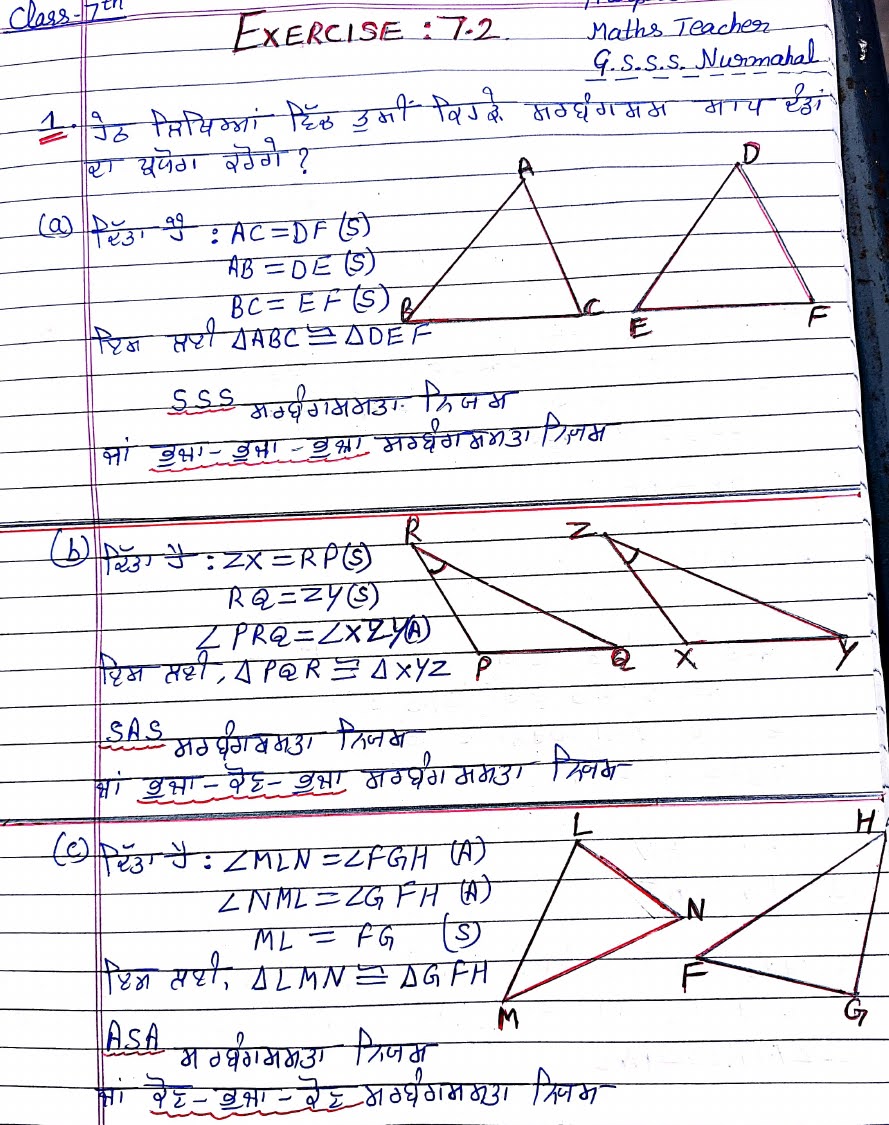 Class-7th
EXERCISE : 7.2
Maths Teacher
G.S.S.S. Nurmahal
1. ਹੇਠ ਲਿਖਿਆਂ ਵਿੱਚ ਤੁਸੀਂ ਕਿਹੜੇ ਸਰਬੰਗਸਮ ਮਾਪ ਦੰਡਾਂ
ਦਾ ਪ੍ਰਯੋਗ ਕਰੋਗੇ ?
A
D
(a) ਦਿੱਤਾ ਹੈ : AC = DF (S)
AB = DE (S)
BC = EF (S)
B
C
E
F
ਇਸ ਲਈ ΔABC ≅ ΔDEF
SSS ਸਰਬੰਗਸਮਤਾ ਨਿਯਮ
ਜਾਂ ਭੁਜਾ - ਭੁਜਾ - ਭੁਜਾ ਸਰਬੰਗਸਮਤਾ ਨਿਯਮ
R
Z
(b) ਦਿੱਤਾ ਹੈ : ZX = RP (S)
RQ = ZY (S)
∠PRQ = ∠XZY (A)
P
Q
X
Y
ਇਸ ਲਈ, ΔPQR ≅ ΔXYZ
SAS ਸਰਬੰਗਸਮਤਾ ਨਿਯਮ
ਜਾਂ ਭੁਜਾ - ਕੋਣ - ਭੁਜਾ ਸਰਬੰਗਸਮਤਾ ਨਿਯਮ
L
H
(c) ਦਿੱਤਾ ਹੈ : ∠MLN = ∠FGH (A)
∠NML = ∠GFH (A)
ML = FG (S)
N
F
ਇਸ ਲਈ, ΔLMN ≅ ΔGFH
M
G
ASA ਸਰਬੰਗਸਮਤਾ ਨਿਯਮ
ਜਾਂ ਕੋਣ - ਭੁਜਾ - ਕੋਣ ਸਰਬੰਗਸਮਤਾ ਨਿਯਮ